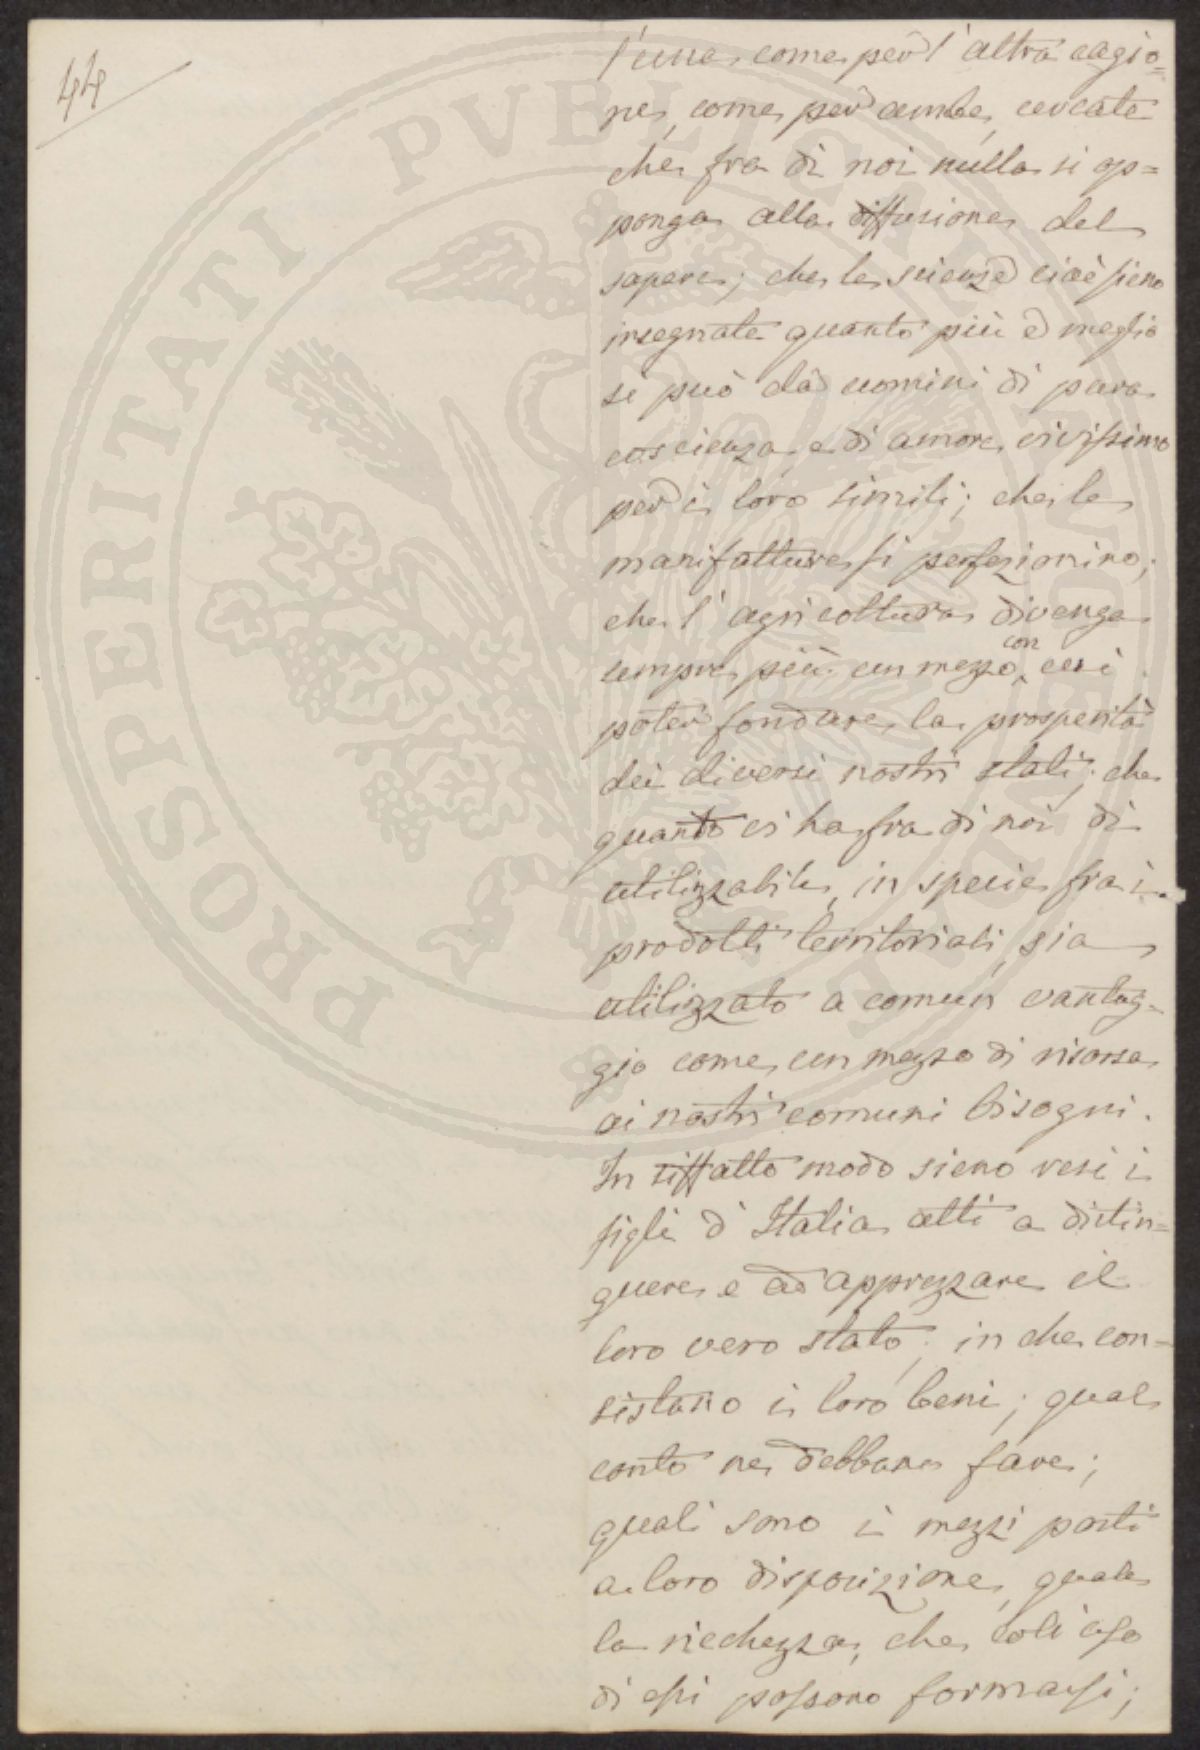 44
l'una, come per l'altra cagio=
ne, come per ambe, cercate
che fra di noi nulla si op=
ponga alla diffusione del
sapere; che le scienze cioè sieno
insegnate quanto più e meglio
si può da uomini di pura
coscienza, e di amore vivissimo
per i loro simili; che le
manifatture si perfezionino;
che l'agricoltura divenga
sempre più un mezzo, con cui
poter fondare la prosperità
dei diversi nostri stati; che
quanto ci ha fra di noi di
utilizzabile, in specie fra i
prodotti territoriali, sia
utilizzato a comun vantag=
gio come un mezzo di risorsa
ai nostri comuni bisogni.
In siffatto modo sieno resi i
figli d'Italia atti a distin=
guere e ad apprezzare il
loro vero stato; in che con=
sistano i loro beni; qual
conto ne debbano fare;
quali sono i mezzi posti
a loro disposizione, quale
la ricchezza, che coll' uso
di essi possono formarsi;
PROSPERITATI PVBLICAE AVGENDAE